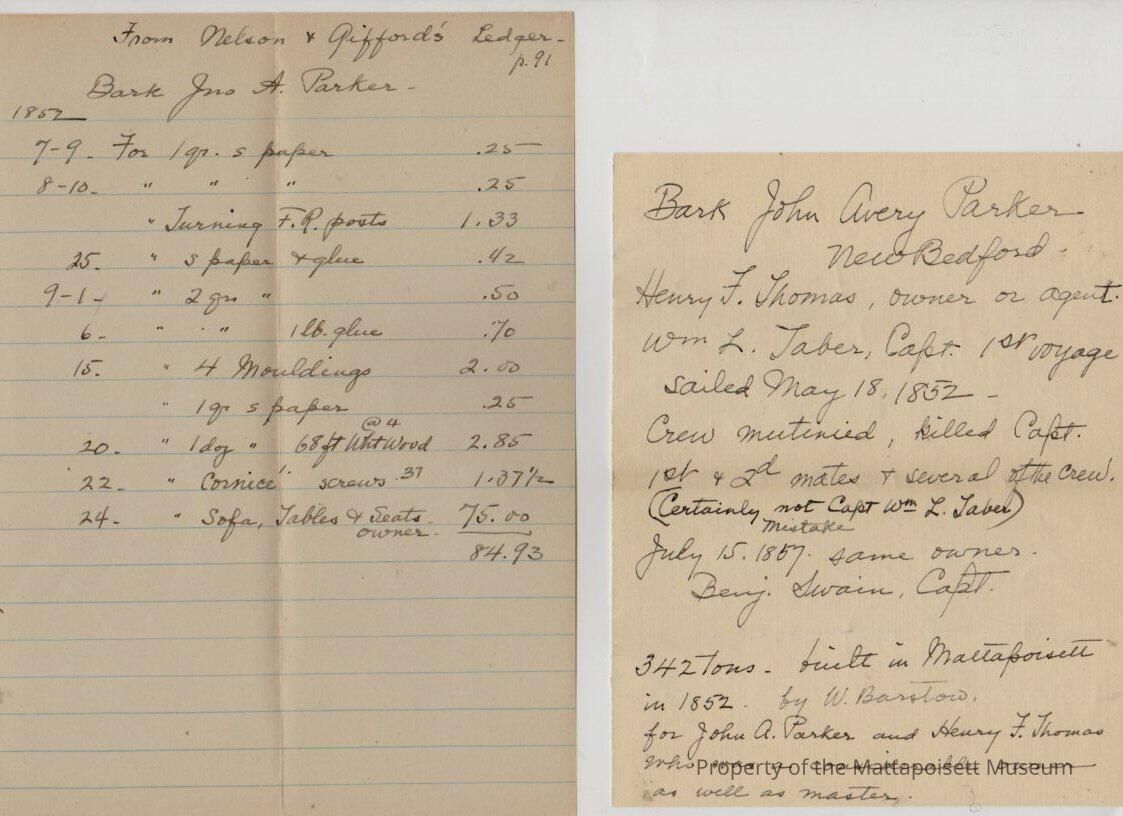 From Nelson & Gifford's Ledger -
p. 91
Bark Jno A. Parker -
1852
7-9. For 1 qr. s paper .25
8-10. " " " .25
" Turning F.R. posts 1.33
25. " s paper & glue .42
9-1- " 2 qrs " .50
6- " " 1 lb. glue .70
15. " 4 Mouldings 2.00
" 1 qr s paper .25
20. " 1 doz " 68 ft Wht Wood @ 4 2.85
22- " Cornice " screws .37 1.37 1/2
24- " Sofa, Tables & Seats. 75.00
owner.
84.93
Bark John Avery Parker
New Bedford -
Henry F. Thomas, owner or agent.
Wm L. Taber, Capt. 1st voyage
sailed May 18, 1852 -
Crew mutinied, killed Capt.
1st & 2d mates & several of the crew.
(Certainly not Capt Wm L. Taber)
Mistake
July 15. 1857. same owner.
Benj. Swain, Capt.
342 tons - built in Mattapoisett
in 1852. by W. Barstow.
for John A. Parker and Henry F. Thomas
who was a
as well as master.
Property of the Mattapoisett Museum